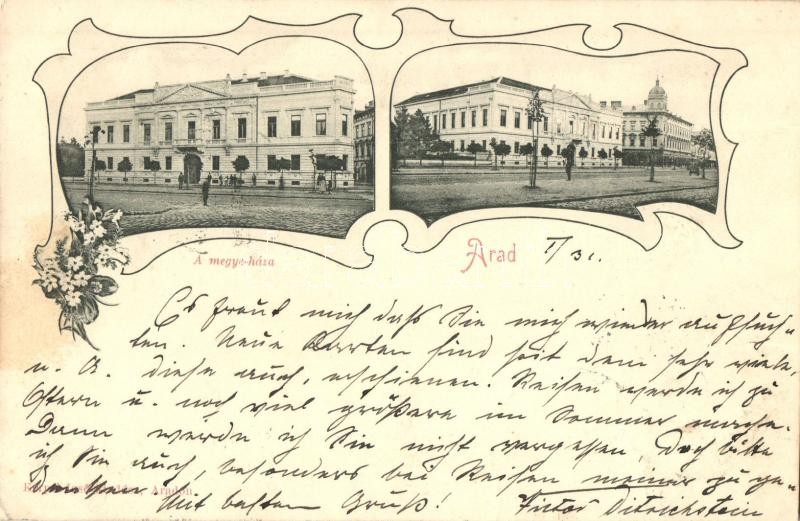 A megye-háza
Arad I/31.
Es freut mich daß Sie mich wieder aufsuch-
ten. Neue Karten sind seit dem sehr viele,
u. A. diese auch, erschienen. Reisen werde ich zu
Ostern u. noch viel größere im Sommer mache.
Dann werde ich Sie nicht vergessen, Doch bitte
ich Sie auch, besonders bei Reisen meiner zu ge-
denken
Aradon.
Mit besten Gruß! Victor Ditrichstein